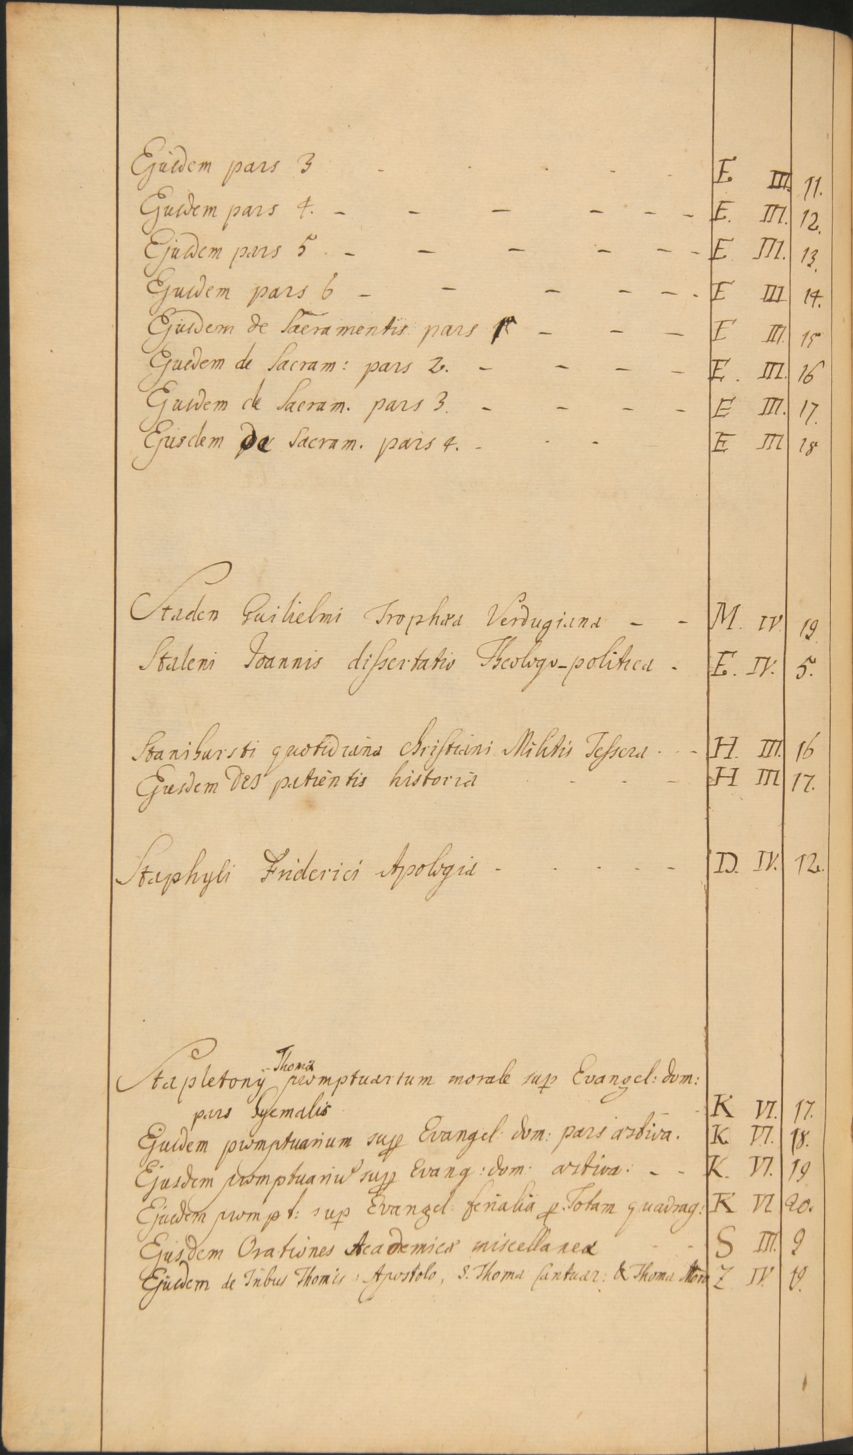 Ejusdem pars 3 - - - - - E III. 11.
Ejusdem pars 4. - - - - - - E. III. 12.
Ejusdem pars 5. - - - - - - E III. 13.
Ejusdem pars 6 - - - - - - E III 14.
Ejusdem de Sacramentis pars 1 - - - E III. 15
Ejusdem de Sacram: pars 2. - - - - E. III. 16
Ejusdem de Sacram. pars 3. - - - - E III. 17.
Ejusdem De Sacram. pars 4. - - - E III 18
Staden Guilielmi Trophæa Verdugiana - - M. IV. 19
Staleni Joannis dissertatio Theologo-politica - E. IV. 5.
Stanihursti quotidiana christiani Militis Tessera - - H. III. 16
Ejusdem Dei patientis historia - - - H III 17.
Staphyli Friderici Apologia - - - - - D. IV. 12.
Thomæ
Stapletony promptuarium morale sup Evangel: dom:
pars hyemalis - K VI. 17.
Ejusdem promptuarium sup Evangel: dom: pars æstiva. K VI. 18.
Ejusdem promptuariu sup Evang: dom: æstiva: - - K. VI. 19
Ejusdem prompt: sup Evangel: ferialia p Totam quadrag: K VI 20.
Ejusdem Orationes Academicæ miscellaneæ - - S III. 9
Ejusdem de Tribus Thomis: Apostolo, S. Thoma Cantuar: & Thoma Moro Z IV 19.